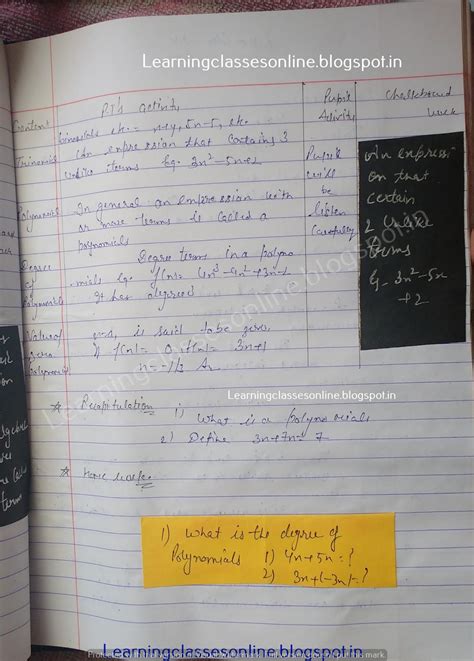 Learningclassesonline.blogspot.in
Content
P.T's activity
Pupil's
Activity
Chalkboard
work
binomials etc. x+y, 5x-5, etc.
Trinomials
an expression that contains 3
unlike terms Eg. 3x²-5x+2
Pupil's
will
be
listen
carefully
an expressi
on that
certain
2 unlike
terms
Eg. 3x²-5x
+2
Polynomials
In general an expression with
or more terms is called a
polynomials
Degree
of
Polynomials
Degree terms in a polyno
mials Eg. f(x) = 4x³-4x²+3x-2
It has degree 3
Value of
zero
Polynomials
is said to be zero,
if f(x) = 0 f(x) = 3x+1
x = -1/3 Ar
Learningclassesonline.blogspot.in
Learningclassesonline.blogspot.in
☆ Recapitulation
1) What is a polynomials
2) Define 3x+7x = ?
☆ Home work:-
1) What is the degree of
Polynomials 1) 4x+5x = ?
2) 3x+(-3x) = ?
Learningclassesonline.blogspot.in